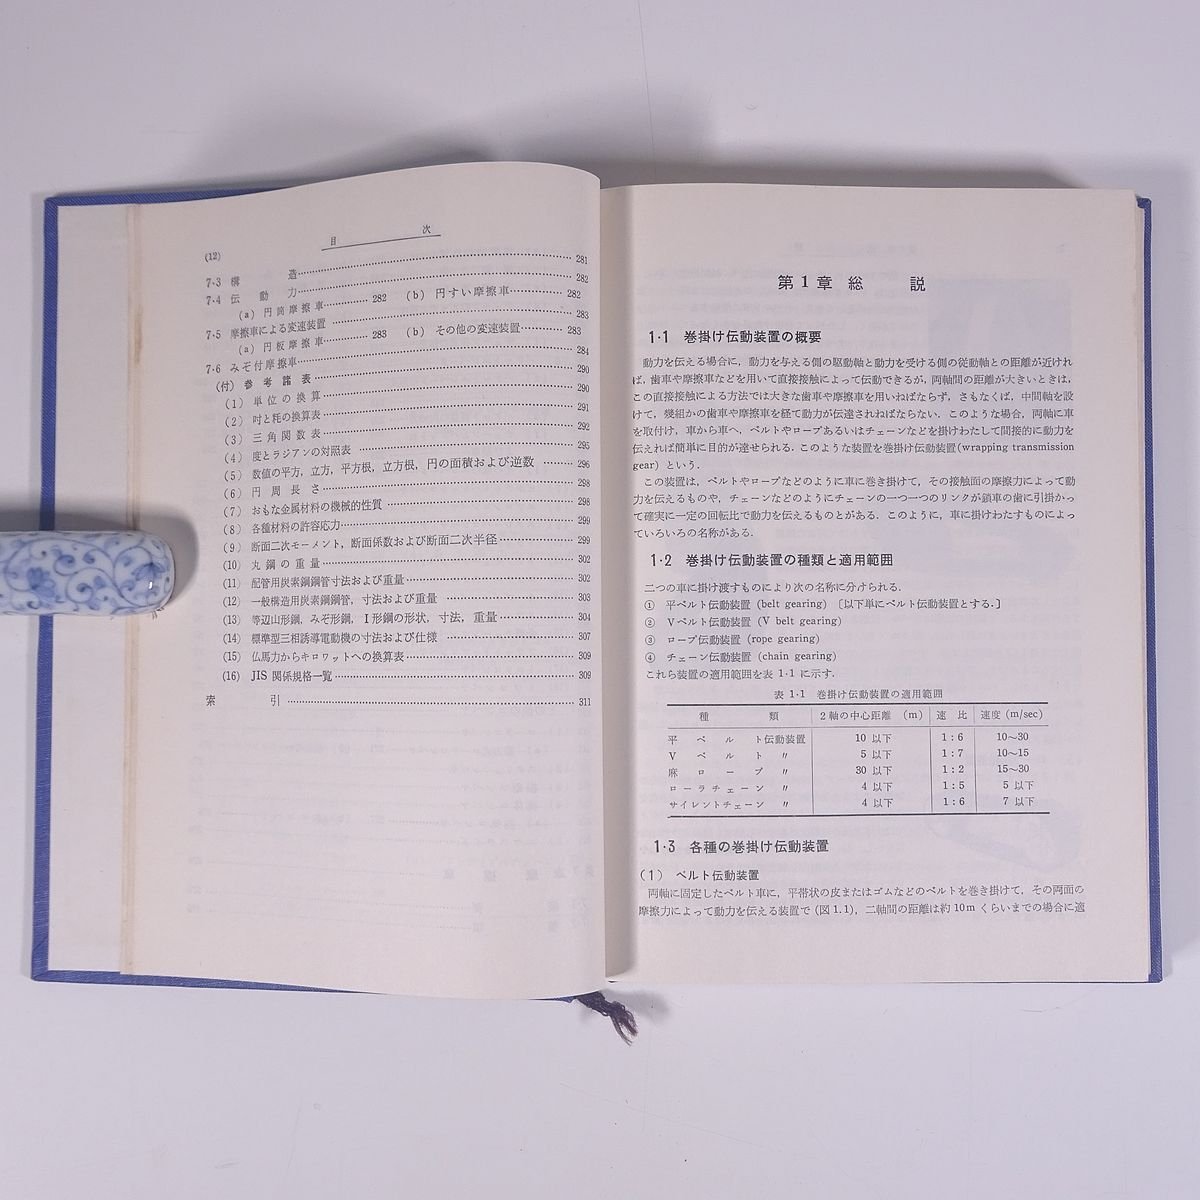 目　次
(12)
7·3 構　造 281
7·4 伝　動　力 282
(a) 円筒摩擦車 282 (b) 円すい摩擦車 282
7·5 摩擦車による変速装置 283
(a) 円板摩擦車 283 (b) その他の変速装置 283
7·6 みぞ付摩擦車 284
(付) 参考諸表 290
(1) 単位の換算 290
(2) 吋と粍の換算表 291
(3) 三角関数表 292
(4) 度とラジアンの対照表 295
(5) 数値の平方，立方，平方根，立方根，円の面積および逆数 296
(6) 円周長さ 298
(7) おもな金属材料の機械的性質 298
(8) 各種材料の許容応力 299
(9) 断面二次モーメント，断面係数および断面二次半径 299
(10) 丸鋼の重量 302
(11) 配管用炭素鋼鋼管寸法および重量 302
(12) 一般構造用炭素鋼鋼管，寸法および重量 303
(13) 等辺山形鋼，みぞ形鋼，I形鋼の形状，寸法，重量 304
(14) 標準型三相誘導電動機の寸法および仕様 307
(15) 仏馬力からキロワットへの換算表 309
(16) JIS 関係規格一覧 309
索　引 311
第1章 総　説
1·1 巻掛け伝動装置の概要
動力を伝える場合に，動力を与える側の駆動軸と動力を受ける側の従動軸との距離が近けれ
ば，歯車や摩擦車などを用いて直接接触によって伝動できるが，両軸間の距離が大きいときは，
この直接接触による方法では大きな歯車や摩擦車を用いねばならず，さもなくば，中間軸を設
けて，幾組かの歯車や摩擦車を経て動力が伝達されねばならない．このような場合，両軸に車
を取付け，車から車へ，ベルトやロープあるいはチェーンなどを掛けわたして間接的に動力を
伝えれば簡単に目的が達せられる．このような装置を巻掛け伝動装置(wrapping transmission
gear) という．
この装置は，ベルトやロープなどのように車に巻き掛けて，その接触面の摩擦力によって動
力を伝えるものや，チェーンなどのようにチェーンの一つ一つのリンクが鎖車の歯に引掛かっ
て確実に一定の回転比で動力を伝えるものとがある．このように，車に掛けわたすものによっ
ていろいろの名称がある．
1·2 巻掛け伝動装置の種類と適用範囲
二つの車に掛け渡すものにより次の名称に分けられる．
① 平ベルト伝動装置 (belt gearing) 〔以下単にベルト伝動装置とする.〕
② Vベルト伝動装置 (V belt gearing)
③ ロープ伝動装置 (rope gearing)
④ チェーン伝動装置 (chain gearing)
これら装置の適用範囲を表 1·1 に示す．
表 1·1 巻掛け伝動装置の適用範囲
種　類 2軸の中心距離 (m) 速比 速度 (m/sec)
平ベルト伝動装置 10 以下 1：6 10～30
Vベルト 〃 5 以下 1：7 10～15
麻ロープ 〃 30 以下 1：2 15～30
ローラチェーン 〃 4 以下 1：5 5 以下
サイレントチェーン 〃 4 以下 1：6 7 以下
1·3 各種の巻掛け伝動装置
(1) ベルト伝動装置
両軸に固定したベルト車に，平帯状の皮またはゴムなどのベルトを巻き掛けて，その両面の
摩擦力によって動力を伝える装置で (図 1.1)，二軸間の距離は約 10m くらいまでの場合に適